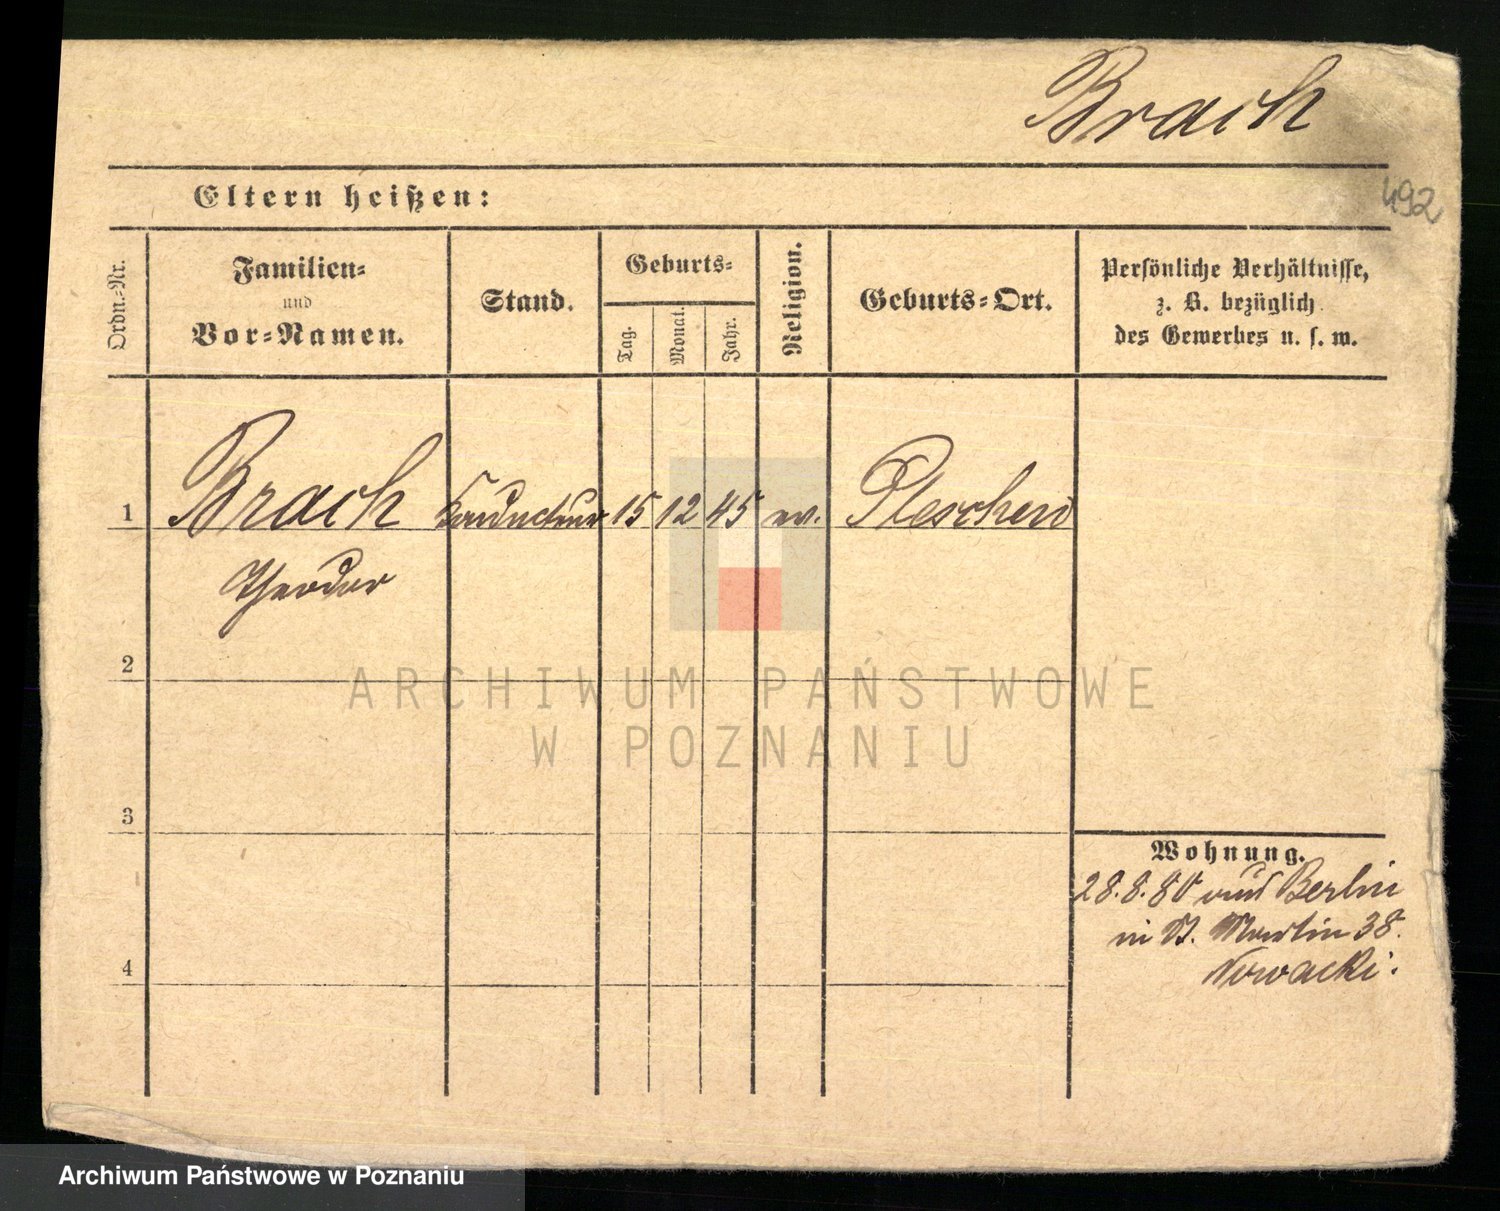 Brach
492
Eltern heißen:
Ordn.-Nr.
Familien-
und
Vor-Namen.
Stand.
Geburts-
Tag.
Monat.
Jahr.
Religion.
Geburts-Ort.
Persönliche Verhältnisse,
z. B. bezüglich
des Gewerbes u. s. w.
1 Brach Conducteur 15 12 45 ev. Pleschen
Theodor
2
3
4
Wohnung.
28.8.80 aus Berlin
in St. Martin 38.
Nowacki.
ARCHIWUM PAŃSTWOWE
W POZNANIU
Archiwum Państwowe w Poznaniu